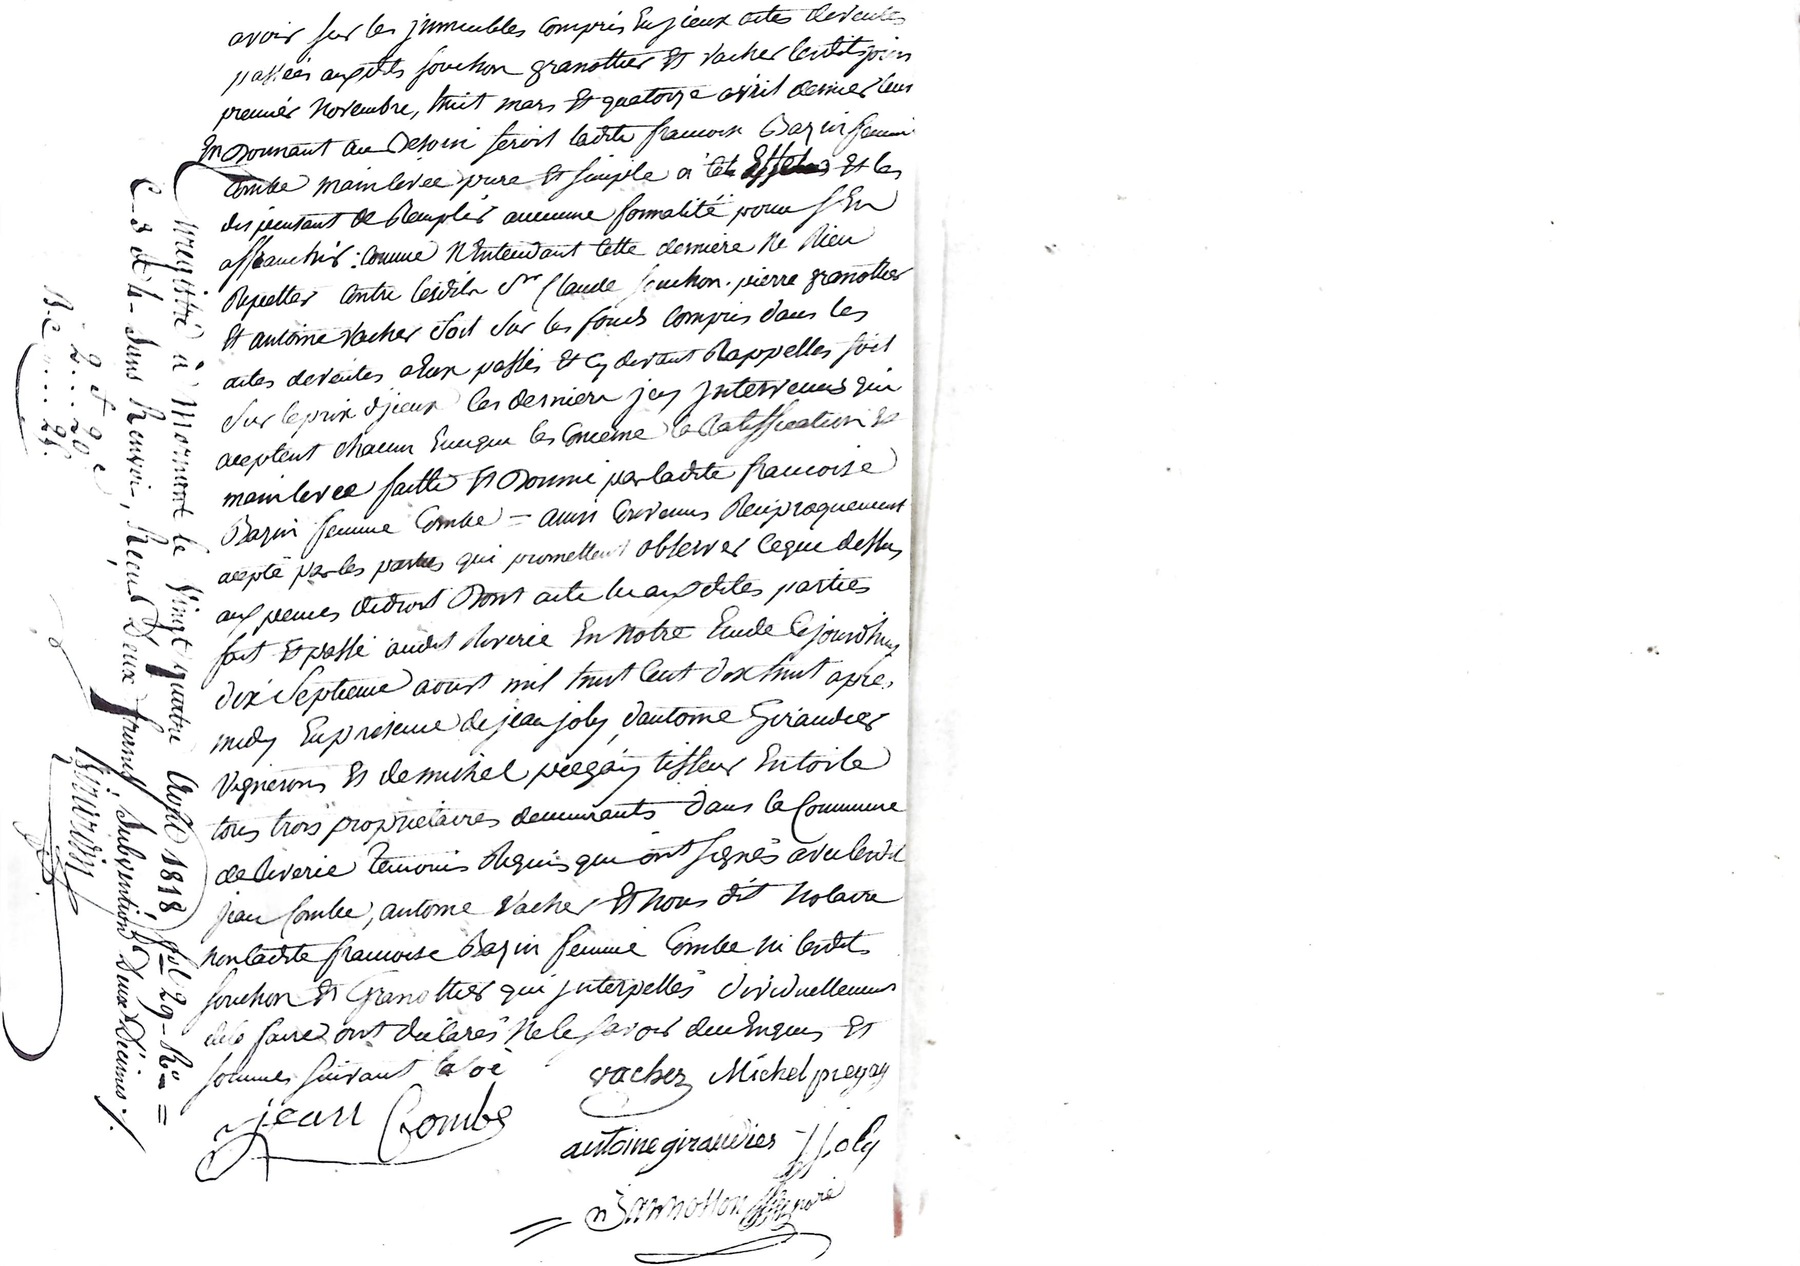 avoir sur les jmmeubles compris En jceux actes deventes
passées auxdits souchon granottier Et vacher lesdits jours
premiér Novembre, huit mars Et quatorze avril dernier leur
En Donnant au Besoin seroit ladite francoise Bazin femme
Combe mainlevée pure Et simple à Et les
dispensant de Remplir aucunne formalité pour s'En
affranchir: Comme N'Entendant Cette derniere Ne Rien
Repetter Contre lesdits Sr Claude souchon. pierre granottier
Et antoine vacher soit sur les fonds Compris dans les
actes deventes aEux passés Et Cy devant Rappellés soit
sur leprix d'jceux les derniers jcy jntervenus qui
aceptent chacun Enceque les Concerne la Ratiffication Et
mainlevée faitte Et Donnée par ladite francoise
Bazin femme Combe = ainsi Convenus Réciproquement
acepté par les parties qui promettent observer Ceque dessus
aux peines dedroit Dont acte lu auxdites parties
fait Et passé audit Riverie En Notre Etude Cejourd'huy
dix Septieme aoust mil huit Cent dix huit après
midy En présence de jean joly, d'antoine Giraudier
Vignerons Et de michel pregay tisseur Entoile
tous trois propriétaires demeurants dans la Commune
de Riverie temoins Requis qui ont signés avec lesdit
jean Combe, antoine vacher Et Nous dit Notaire
non ladite francoise Bazin femme Combe ni lesdits
souchon Et Granottier qui jnterpellés dividuellement
dele faire ont déclarés Ne le savoir deu Enquis Et
sommes suivant la loi
vacher Michel pregay
jean Combe
antoine giraudier J Joly
Enregistré à Mornant le Vingt quatre Août 1818 fol 29 - Ro =
C - 3 et 4 - Sans Renvoi, Reçu Deux francs, Subvention Deux Décimes ./.
2 et 20 c